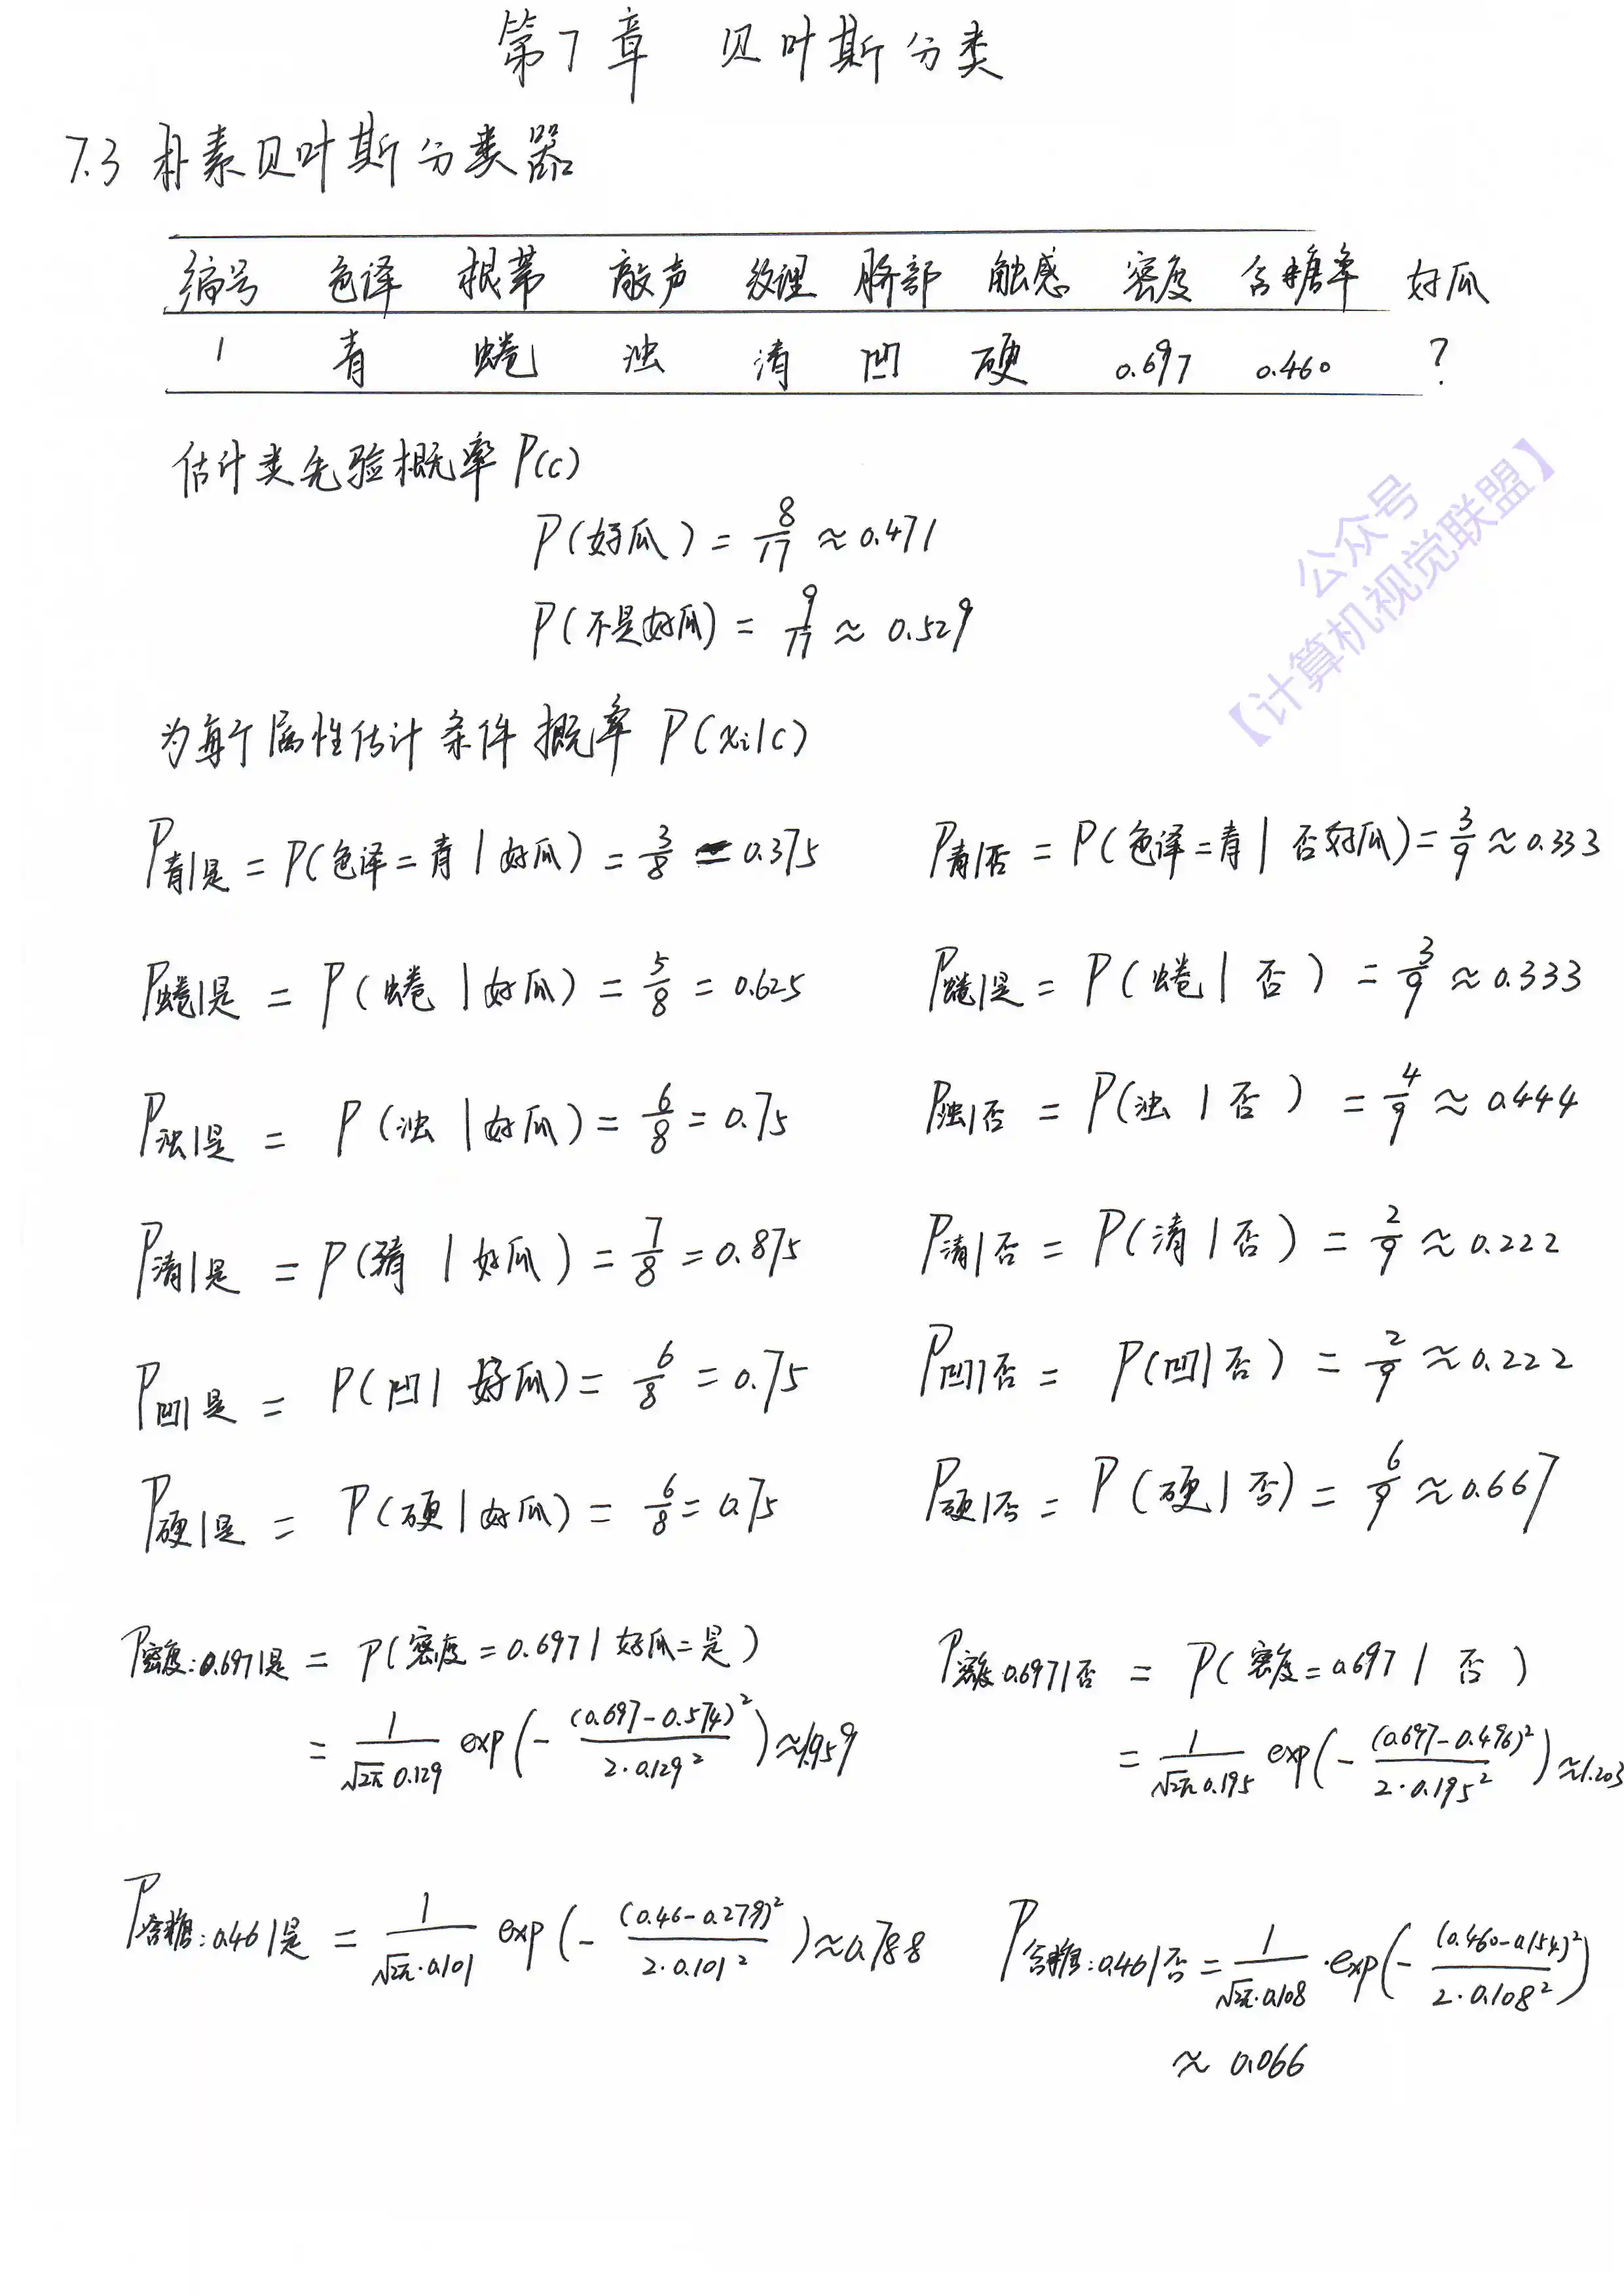 第7章 贝叶斯分类
7.3 朴素贝叶斯分类器
编号 色泽 根蒂 敲声 纹理 脐部 触感 密度 含糖率 好瓜
1 青 蜷 浊 清 凹 硬 0.697 0.460 ?
估计类先验概率 P(c)
P(好瓜) = 8/17 ≈ 0.471
P(不是好瓜) = 9/17 ≈ 0.529
公众号
【计算机视觉联盟】
为每个属性估计条件概率 P(xi|c)
P青|是 = P(色泽=青|好瓜) = 3/8 = 0.375 P青|否 = P(色泽=青|否好瓜) = 3/9 ≈ 0.333
P蜷|是 = P(蜷|好瓜) = 5/8 = 0.625 P蜷|是 = P(蜷|否) = 3/9 ≈ 0.333
P浊|是 = P(浊|好瓜) = 6/8 = 0.75 P浊|否 = P(浊|否) = 4/9 ≈ 0.444
P清|是 = P(清|好瓜) = 7/8 = 0.875 P清|否 = P(清|否) = 2/9 ≈ 0.222
P凹|是 = P(凹|好瓜) = 6/8 = 0.75 P凹|否 = P(凹|否) = 2/9 ≈ 0.222
P硬|是 = P(硬|好瓜) = 6/8 = 0.75 P硬|否 = P(硬|否) = 6/9 ≈ 0.667
P密度:0.697|是 = P(密度=0.697|好瓜=是) P密度:0.697|否 = P(密度=0.697|否)
= 1/(√2π 0.129) exp(-(0.697-0.574)²/(2·0.129²)) ≈ 1.959 = 1/(√2π 0.195) exp(-(0.697-0.496)²/(2·0.195²)) ≈ 1.203
P含糖:0.46|是 = 1/(√2π·0.101) exp(-(0.46-0.279)²/(2·0.101²)) ≈ 0.788 P含糖:0.46|否 = 1/(√2π·0.108)·exp(-(0.460-0.154)²/(2·0.108²))
≈ 0.066